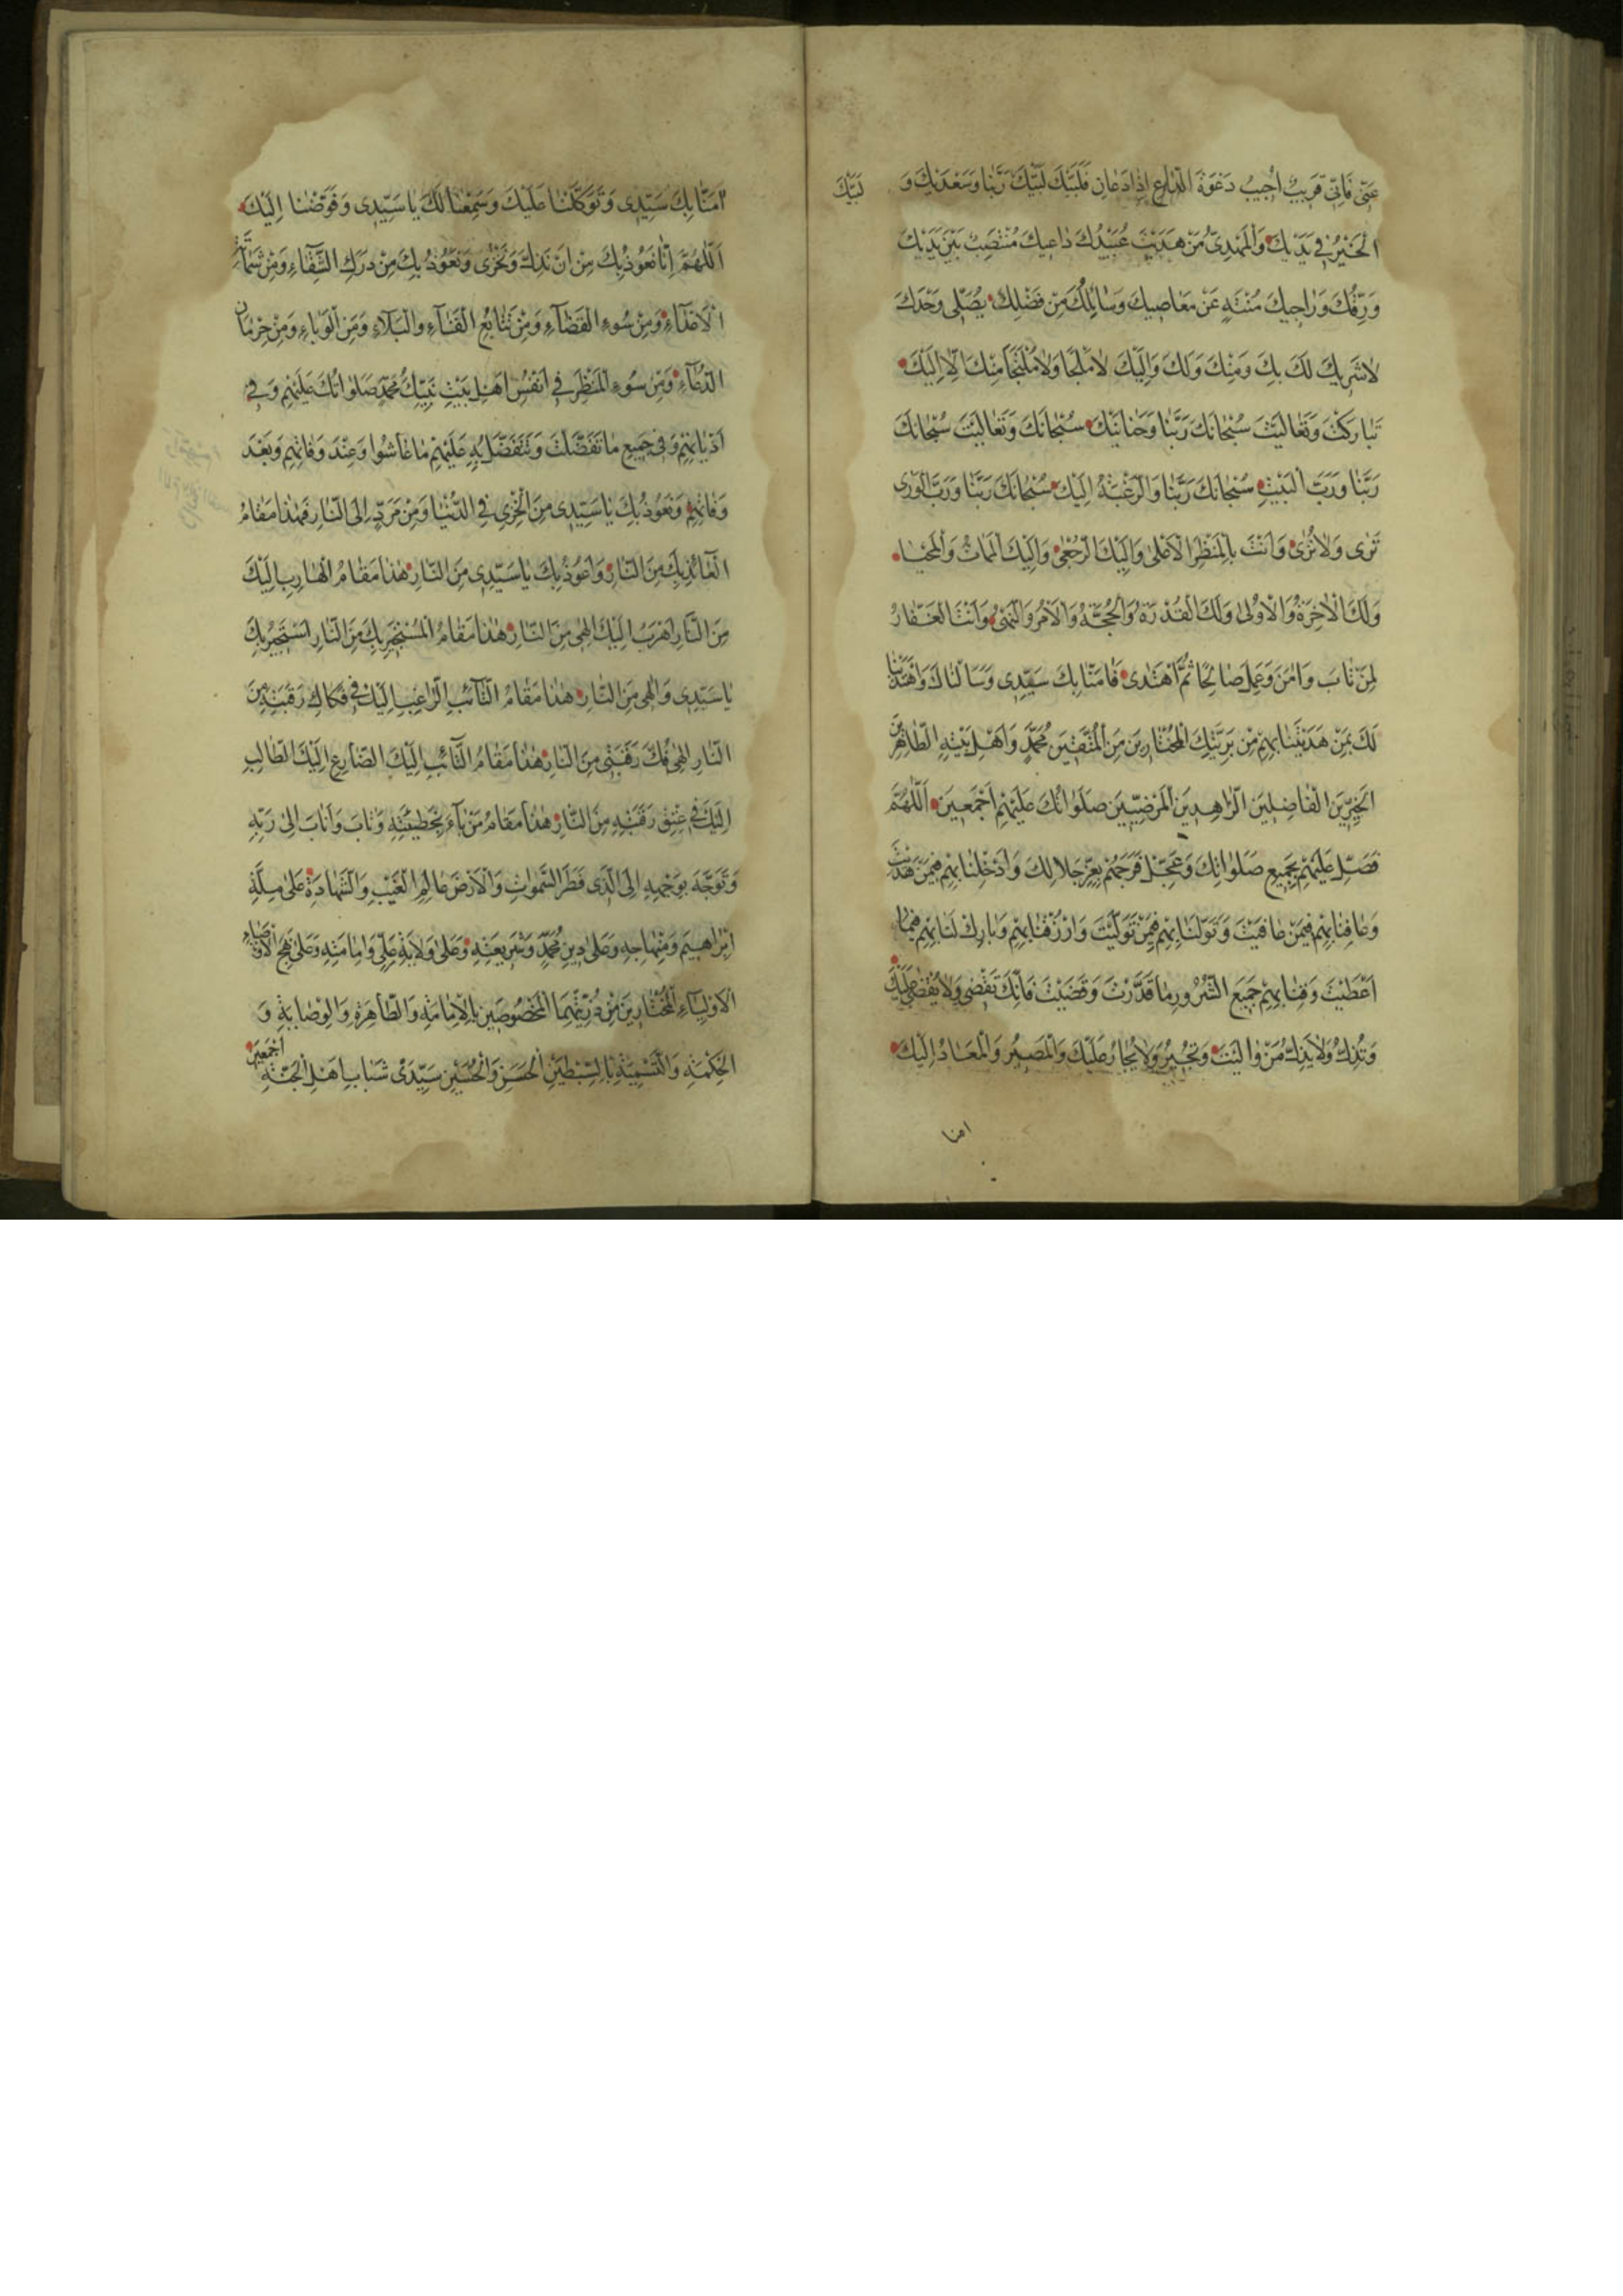 عَنّى فَاِنّى قَريبٌ اُجيبُ دَعْوَةَ الدّاعِ اِذا دَعانِ فَلَبَّيْكَ لَبَّيْكَ رَبَّنا وَسَعْدَيْكَ وَ
لَبَّيْكَ
الْخَيْرُ فى يَدَيْكَ وَالْمَهْدِىُّ مَنْ هَدَيْتَ عُبَيْدُكَ داعيكَ مُنْتَصِبٌ بَيْنَ يَدَيْكَ
وَرِقُّكَ وَراجيكَ مُنْتَهٍ عَنْ مَعاصيكَ وَسائِلُكَ مِنْ فَضْلِكَ يُصَلّى وَحْدَكَ
لا شَريكَ لَكَ بِكَ وَمِنْكَ وَلَكَ وَاِلَيْكَ لا مَلْجَا وَلا مُلْتَجَاَ مِنْكَ اِلّا اِلَيْكَ
تَبارَكْتَ وَتَعالَيْتَ سُبْحانَكَ رَبَّنا وَحَنانَيْكَ سُبْحانَكَ وَتَعالَيْتَ سُبْحانَكَ
رَبَّنا وَرَبَّ الْبَيْتِ سُبْحانَكَ رَبَّنا وَالرَّغْبَةُ اِلَيْكَ سُبْحانَكَ رَبَّنا وَرَبَّ الْوَرى
تَرى وَلا تُرى وَاَنْتَ بِالْمَنْظَرِ الْاَعْلى وَاِلَيْكَ الرُّجْعى وَاِلَيْكَ الْمَماتُ وَالْمَحْيا
وَلَكَ الْاخِرَةُ وَالْاُولى وَلَكَ الْقُدْرَةُ وَالْحُجَّةُ وَالْاَمْرُ وَالنَّهْىُ وَاَنْتَ الْغَفّارُ
لِمَنْ تابَ وَامَنَ وَعَمِلَ صالِحًا ثُمَّ اهْتَدى فَامَنّا بِكَ سَيِّدى وَسَاَلْناكَ وَاهْتَدَيْنا
لَكَ بِمَنْ هَدَيْتَنا بِهِمْ مِنْ بَرِيَّتِكَ الْمُخْتارينَ مِنَ الْمُتَّقينَ مُحَمَّدٍ وَاَهْلِ بَيْتِهِ الطّاهِرينَ
الْخَيِّرينَ الْفاضِلينَ الزّاهِدينَ الْمَرْضِيّينَ صَلَواتُكَ عَلَيْهِمْ اَجْمَعينَ اَللّهُمَّ
فَصَلِّ عَلَيْهِمْ بِجَميعِ صَلَواتِكَ وَعَجِّلْ فَرَجَهُمْ بِعِزِّ جَلالِكَ وَاَدْخِلْنا بِهِمْ فيمَنْ هَدَيْتَ
وَعافِنا بِهِمْ فيمَنْ عافَيْتَ وَتَوَلَّنا بِهِمْ فيمَنْ تَوَلَّيْتَ وَارْزُقْنا بِهِمْ وَبارِكْ لَنا بِهِمْ فيما
اَعْطَيْتَ وَقِنا بِهِمْ جَميعَ الشُّرُورِ ما قَدَّرْتَ وَقَضَيْتَ فَاِنَّكَ تَقْضى وَلا يُقْضى عَلَيْكَ
وَتُذِلُّ وَلا يَذِلُّ مَنْ والَيْتَ وَتُجيرُ وَلا يُجارُ عَلَيْكَ وَالْمَصيرُ وَالْمَعادُ اِلَيْكَ
امنا
امَنّا بِكَ سَيِّدى وَتَوَكَّلْنا عَلَيْكَ وَسَمِعْنا لَكَ يا سَيِّدى وَفَوَّضْنا اِلَيْكَ
اَللّهُمَّ اِنّا نَعُوذُ بِكَ مِنْ اَنْ نَذِلَّ وَنَخْزى وَنَعُوذُ بِكَ مِنْ دَرَكِ الشَّقاءِ وَمِنْ شَماتَةِ
الْاَعْداءِ وَمِنْ سُوءِ الْقَضاءِ وَمِنْ تَتابُعِ الْفَناءِ وَالْبَلاءِ وَمِنَ الْوَباءِ وَمِنْ حِرْمانِ
الدُّعاءِ وَمِنْ سُوءِ الْمَنْظَرِ فى اَنْفُسِ اَهْلِ بَيْتِ نَبِيِّكَ مُحَمَّدٍ صَلَواتُكَ عَلَيْهِمْ وَفى
اَدْيانِهِمْ وَفى جَميعِ ما تَفَضَّلْتَ وَتَتَفَضَّلُ بِهِ عَلَيْهِمْ ما عاشُوا وَعِنْدَ وَفاتِهِمْ وَبَعْدَ
وَفاتِهِمْ وَنَعُوذُ بِكَ يا سَيِّدى مِنَ الْخِزْىِ فِى الدُّنْيا وَمِنْ مَرَدٍّ اِلَى النّارِ فَهذا مَقامُ
الْعائِذِ بِكَ مِنَ النّارِ وَاَعُوذُ بِكَ يا سَيِّدى مِنَ النّارِ هذا مَقامُ الْهارِبِ اِلَيْكَ
مِنَ النّارِ اَهْرَبُ اِلَيْكَ اِلهى مِنَ النّارِ هذا مَقامُ الْمُسْتَجيرِ بِكَ مِنَ النّارِ اَسْتَجيرُ بِكَ
يا سَيِّدى وَاِلهى مِنَ النّارِ هذا مَقامُ التّائِبِ الرّاغِبِ اِلَيْكَ فى فَكاكِ رَقَبَتِهِ مِنَ
النّارِ اِلهى فُكَّ رَقَبَتى مِنَ النّارِ هذا مَقامُ التّائِبِ اِلَيْكَ الضّارِعِ اِلَيْكَ الطّالِبِ
اِلَيْكَ فى عِتْقِ رَقَبَتِهِ مِنَ النّارِ هذا مَقامُ مَنْ باءَ بِخَطيئَتِهِ وَتابَ وَاَنابَ اِلى رَبِّهِ
وَتَوَجَّهَ بِوَجْهِهِ اِلَى الَّذى فَطَرَ السَّمواتِ وَالْاَرْضَ عالِمِ الْغَيْبِ وَالشَّهادَةِ عَلى مِلَّةِ
اِبْراهيمَ وَمِنْهاجِهِ وَعَلى دينِ مُحَمَّدٍ وَشَريعَتِهِ وَعَلى وَلايَةِ عَلِىٍّ وَاِمامَتِهِ وَعَلى نَهْجِ الْاَوْصِياءِ
الْاَوْلِياءِ الْمُخْتارينَ مِنْ ذُرِّيَّتِهِمَا الْمَخْصُوصينَ بِالْاِمامَةِ وَالطَّاهِرَةِ وَالْوِصايَةِ وَ
الْحِكْمَةِ وَالتَّسْمِيَةِ بِالسِّبْطَيْنِ الْحَسَنِ وَالْحُسَيْنِ سَيِّدَىْ شَبابِ اَهْلِ الْجَنَّةِ اَجْمَعينَ